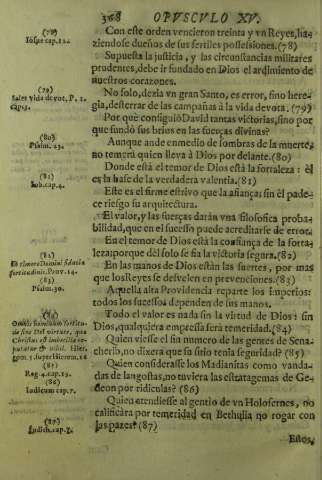 368 OPVSCVLO XV.
Con este orden vencieron treinta y vn Reyes, ha-
ziendose dueños de sus fertiles possessiones. (78)
Supuesta la justicia, y las circunstancias militares
prudentes, debe ir fundado en Dios el ardimento de
nuestros corazones.
No solo, dezia vn gran Santo, es error, sino here-
gia, desterrar de las campañas à la vida devota. (79)
Por què consiguiò David tantas victorias, sino por
que fundò sus brios en las fuerças divinas?
Aunque ande en medio de sombras de la muerte,
no temerà quien lleva à Dios por delante. (80)
Donde està el temor de Dios està la fortaleza: èl
es la base de la verdadera valentia. (81)
Este es el firme estrivo que la afiança; sin èl pade-
ce riesgo su arquitectura.
El valor, y las fuerças daràn vna filosofica proba-
bilidad, que en el sucesso puede acreditarse de error.
En el temor de Dios està la confiança de la forta-
leza: porque dèl solo se fia la victoria segura. (82)
En las manos de Dios estàn las suertes, por mas
que los Reyes se desvelen en prevenciones. (83)
Aquella alta Providencia reparte los Imperios:
todos los sucessos dependen de sus manos.
Todo el valor es nada sin la virtud de Dios: sin
Dios, qualquiera empressa serà temeridad. (84)
Quien viesse el sin numero de las gentes de Sena-
cherib, no dixera que su sitio tenia seguridad? (85)
Quien considerasse los Madianitas como vanda-
das de langostas, no tuviera las estratagemas de Ge-
deon por ridiculas? (86)
Quien atendiesse al gentio de vn Holofernes, no
calificàra por temeridad en Bethulia no rogar con
las pazes? (87)
Estos,
(78)
Iosue cap. 12.
(79)
Sales vida devot. P. 1.
cap. 3.
(80)
Psalm. 23.
(81)
Iob. cap. 4.
(82)
In timore Domini fiducia
fortitudinis. Prov. 14.
(83)
Psalm. 30.
(84)
Omnis hominum fortitu-
do sine Dei virtute, qua
Christus est imbecilla re-
putatur & nihil.
(85)
Reg. 4. cap. 19.
(86)
Iudicum cap. 7.
(87)
Iudith. cap. 7.